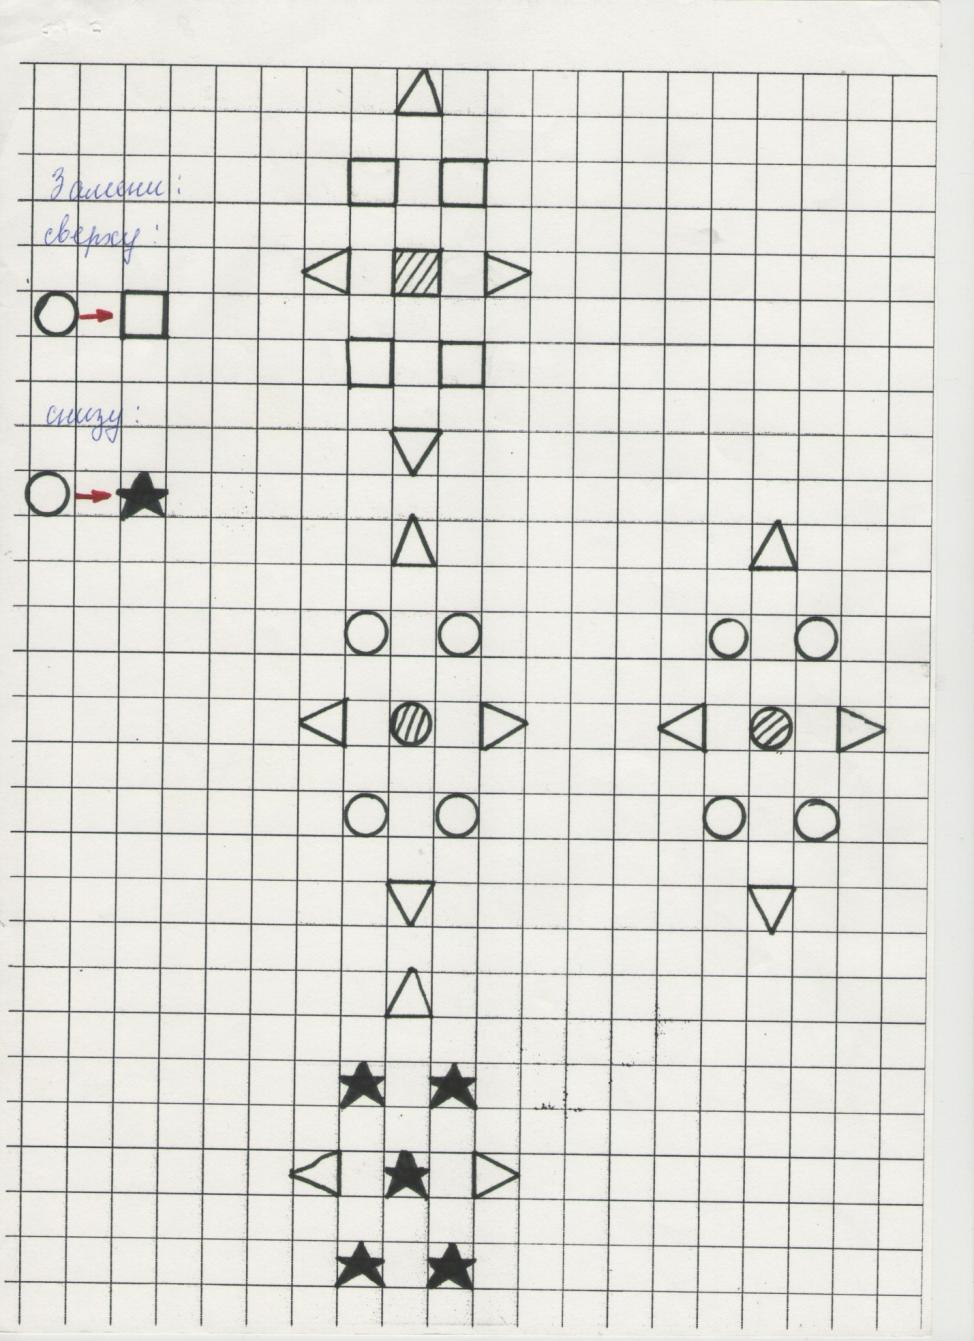 Замени:
сверху:
снизу: